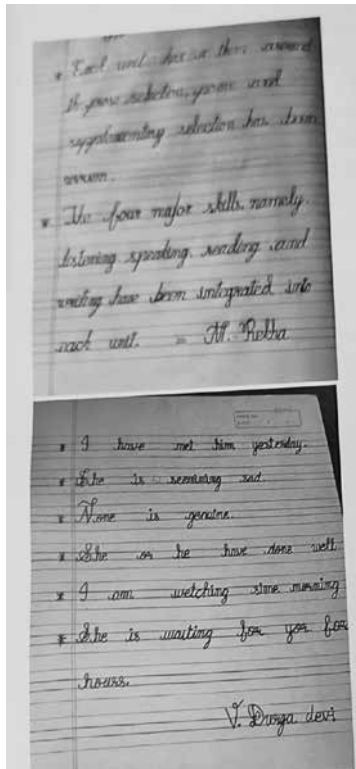 * Each unit has a then around
the prose selection, poem and
supplementing selection has been
woven.
* The four major skills, namely.
listening speaking, reading and
writing have been integrated into
each unit. = M. Rekha
* I have met him yesterday.
* She is seemining sad.
* None is genuine.
* She or he have done well
* I am wetching sime morning
* She is waiting for yor for
hours.
V. Durga devi